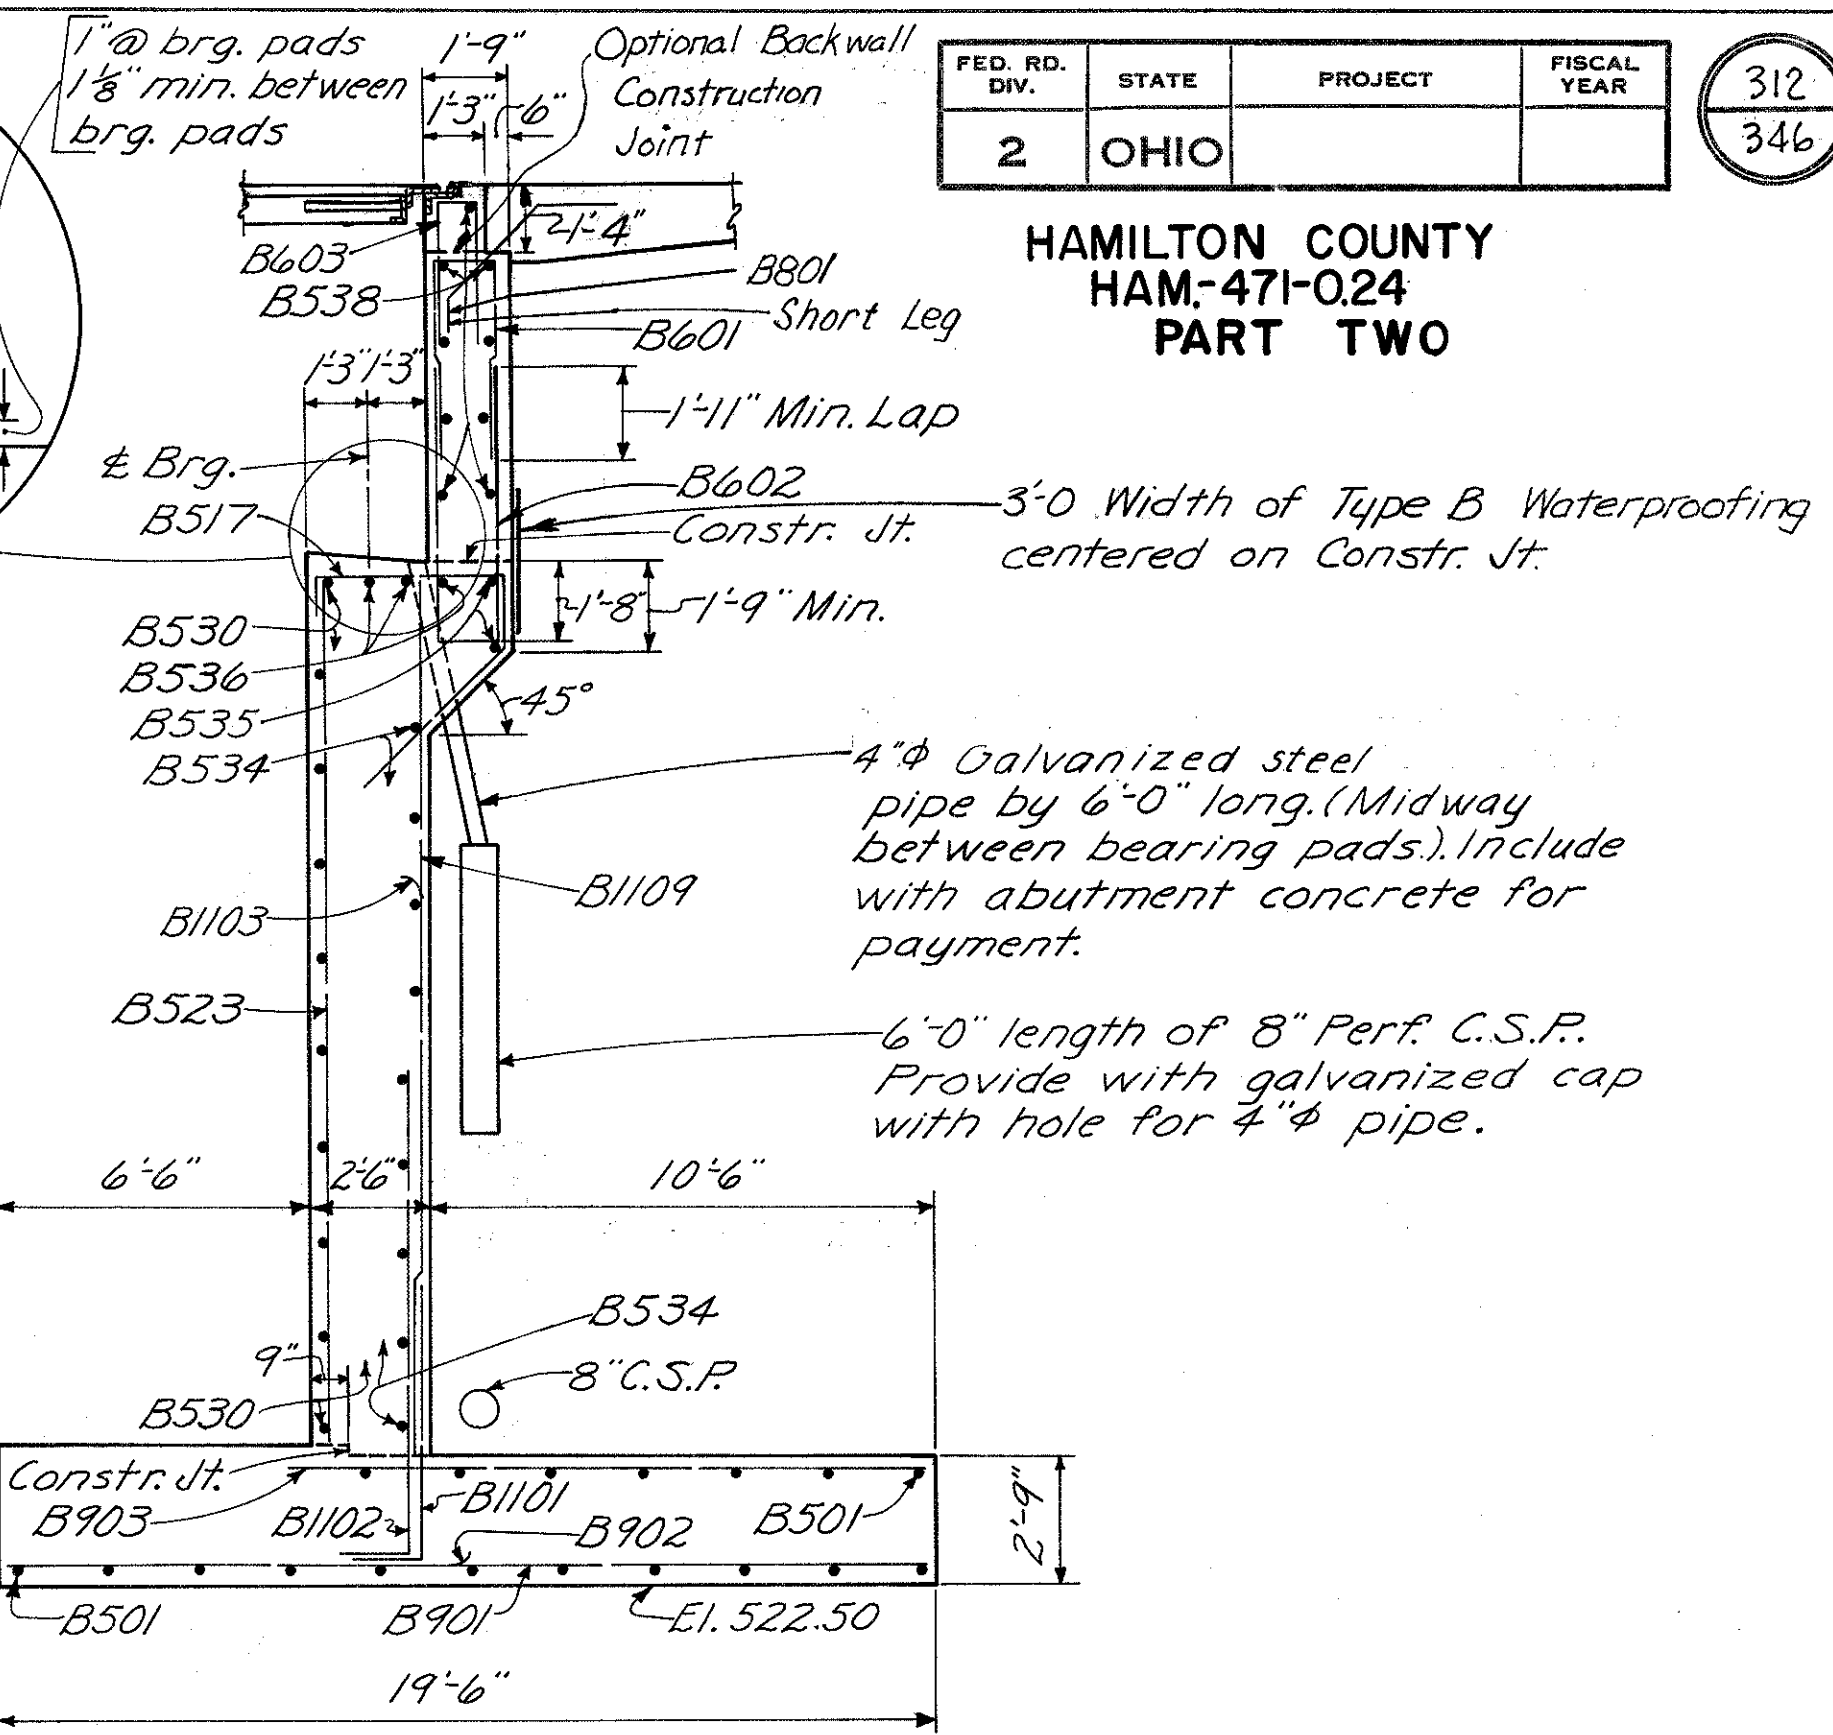 1"@ brg. pads
1 1/8" min. between
brg. pads
1'-9"
1'-3"
6"
Optional Backwall
Construction
Joint
FED. RD. DIV.
STATE
PROJECT
FISCAL YEAR
2
OHIO
312
346
HAMILTON COUNTY
HAM.-471-0.24
PART TWO
B603
B538
1'-4"
B801
Short Leg
B601
1'-3"
1'-3"
1'-11" Min. Lap
℄ Brg.
B517
B602
Constr. Jt.
3'-0 Width of Type B Waterproofing
centered on Constr. Jt.
1'-8"
1'-9" Min.
B530
B536
B535
B534
45°
4"Φ Galvanized steel
pipe by 6'-0" long. (Midway
between bearing pads). Include
with abutment concrete for
payment.
B1103
B1109
B523
6'-0" length of 8" Perf. C.S.P.
Provide with galvanized cap
with hole for 4"Φ pipe.
6'-6"
2'-6"
10'-6"
B534
9"
8" C.S.P.
B530
Constr. Jt.
B903
B1102
B1101
B902
B501
2'-9"
B501
B901
El. 522.50
19'-6"